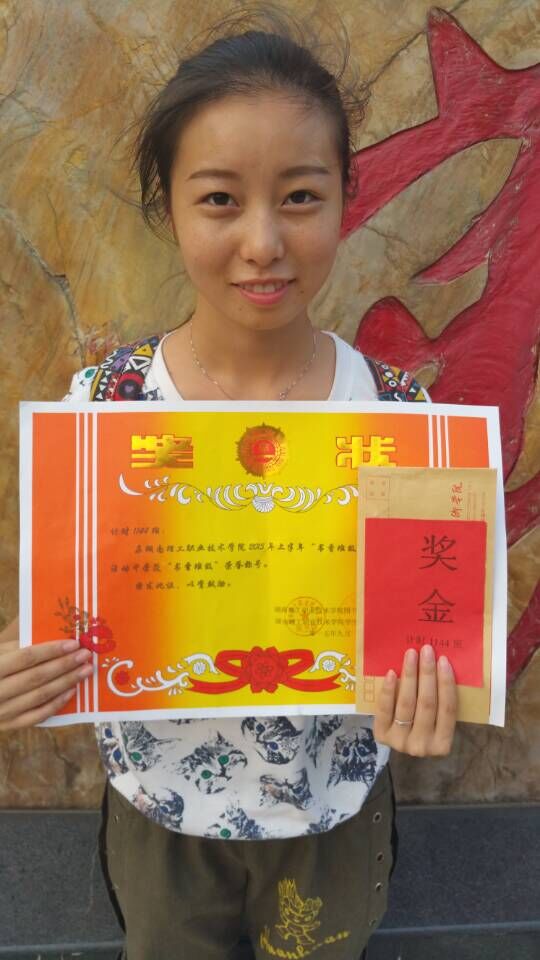 奖 状
计财1144班：
在湖南理工职业技术学院2015年上学年"书香班级
活动中荣获"书香班级"荣誉称号。
特发此证，以资鼓励。
湖南理工职业技术学院图书
湖南理工职业技术学院学生
一五年九月
学院
奖
金
计财1144班